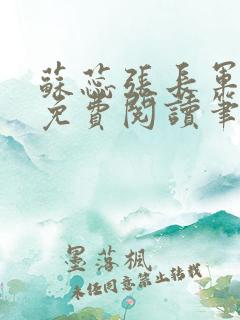 蘇蕊張長軍
免費閱讀筆
墨落楓
未經同意禁止轉載